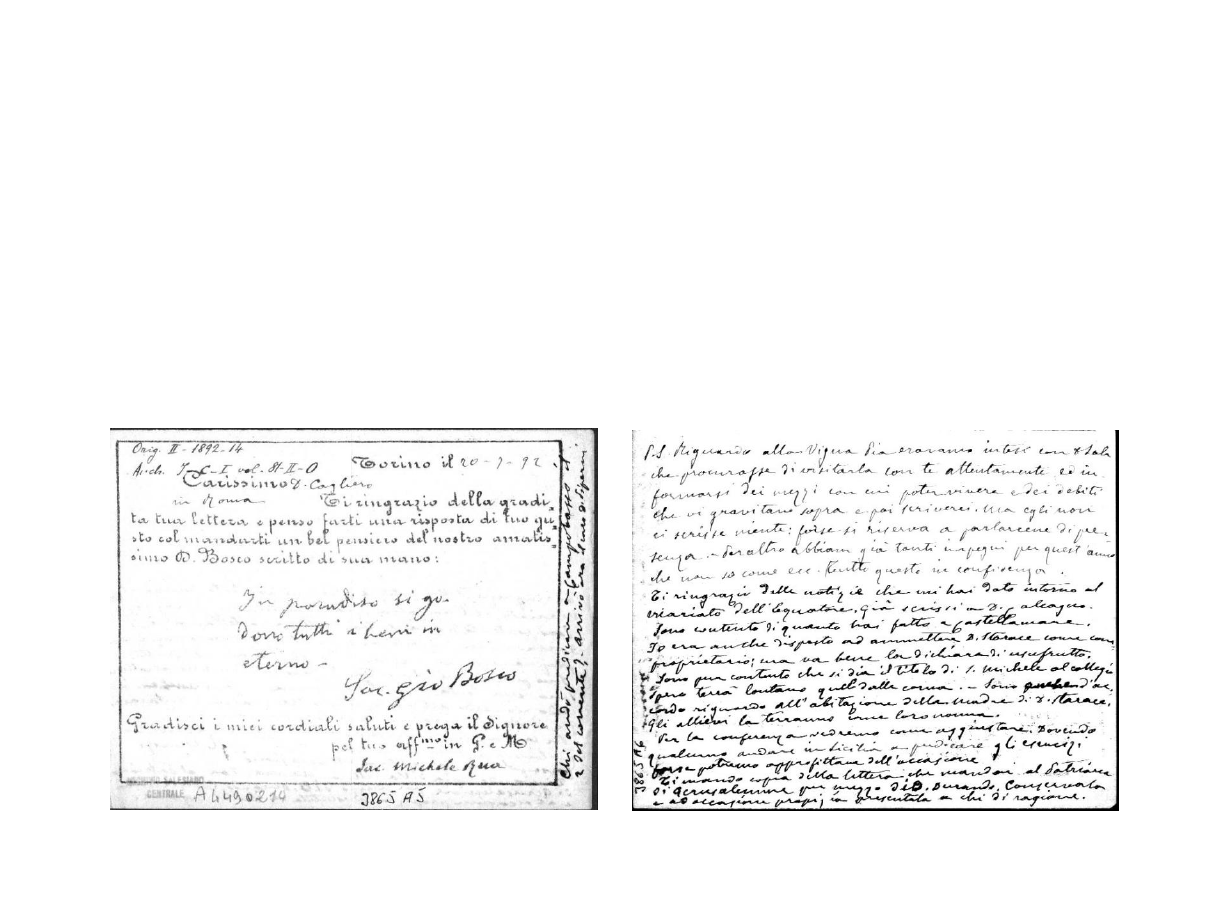 Orig. II - 1892-14
Torino il 20-7-92
Carissimo D. Cagliero
in Roma Ti ringrazio della gradi-
ta tua lettera e penso farti una risposta di tuo gu-
sto col mandarti un bel pensiero del nostro amatis-
simo D. Bosco scritto di sua mano:
In paradiso si go-
dono tutti i beni in
eterno -
Sac. Gio Bosco
Gradisci i miei cordiali saluti e prega il Signore
pel tuo aff.mo in G. e M
Sac. Michele Rua
CENTRALE A4490214
3865 A5
Chi andò predicare a Campobasso il
2 del corrente, arrivò
P.S. Riguardo alla Vigna Pia eravamo intesi con D. Sala
che procurasse di visitarla con te attentamente ed in-
formarsi dei mezzi con cui poter vivere e dei debiti
che vi gravitano sopra e poi scriverci. Ma egli non
ci scrisse niente: forse si riserva a parlarcene di pre-
senza. - Peraltro abbiam già tanti impegni per quest'anno
che non so come ecc. Tutto questo in confidenza.
Ti ringrazio delle notizie che mi hai dato intorno al
vicariato dell'Equatore. Già scrissi a D.
Sono contento di quanto hai fatto a Castellamare.
Io era anche disposto ad ammettere D. Starace come com-
proprietario; ma va bene la dichiara di usufrutto.
Sono pur contento che si dia il titolo di S. Michele al collegio
Spero terrà lontano quel dalle corna. - Sono d'ac-
cordo riguardo all'abitazione della madre di D. Starace,
gli allievi la terranno come loro nonna.
Per la conferenza vedremo come aggiustare. Dovendo
qualcuno andare in Sicilia a predicare gli esercizi
forse potremo approfittare dell'occasione
Ti mando copia della lettera che mandai al Patriarca
di Gerusalemme per mezzo di D. Durando. Conservala
e ad occasione propizia presentala a chi di ragione.
3865 A6